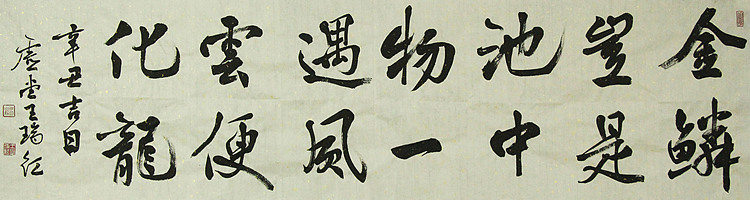 金鱗
豈是
池中
物一
遇風
雲便
化龍
辛丑吉日
堂王瑞